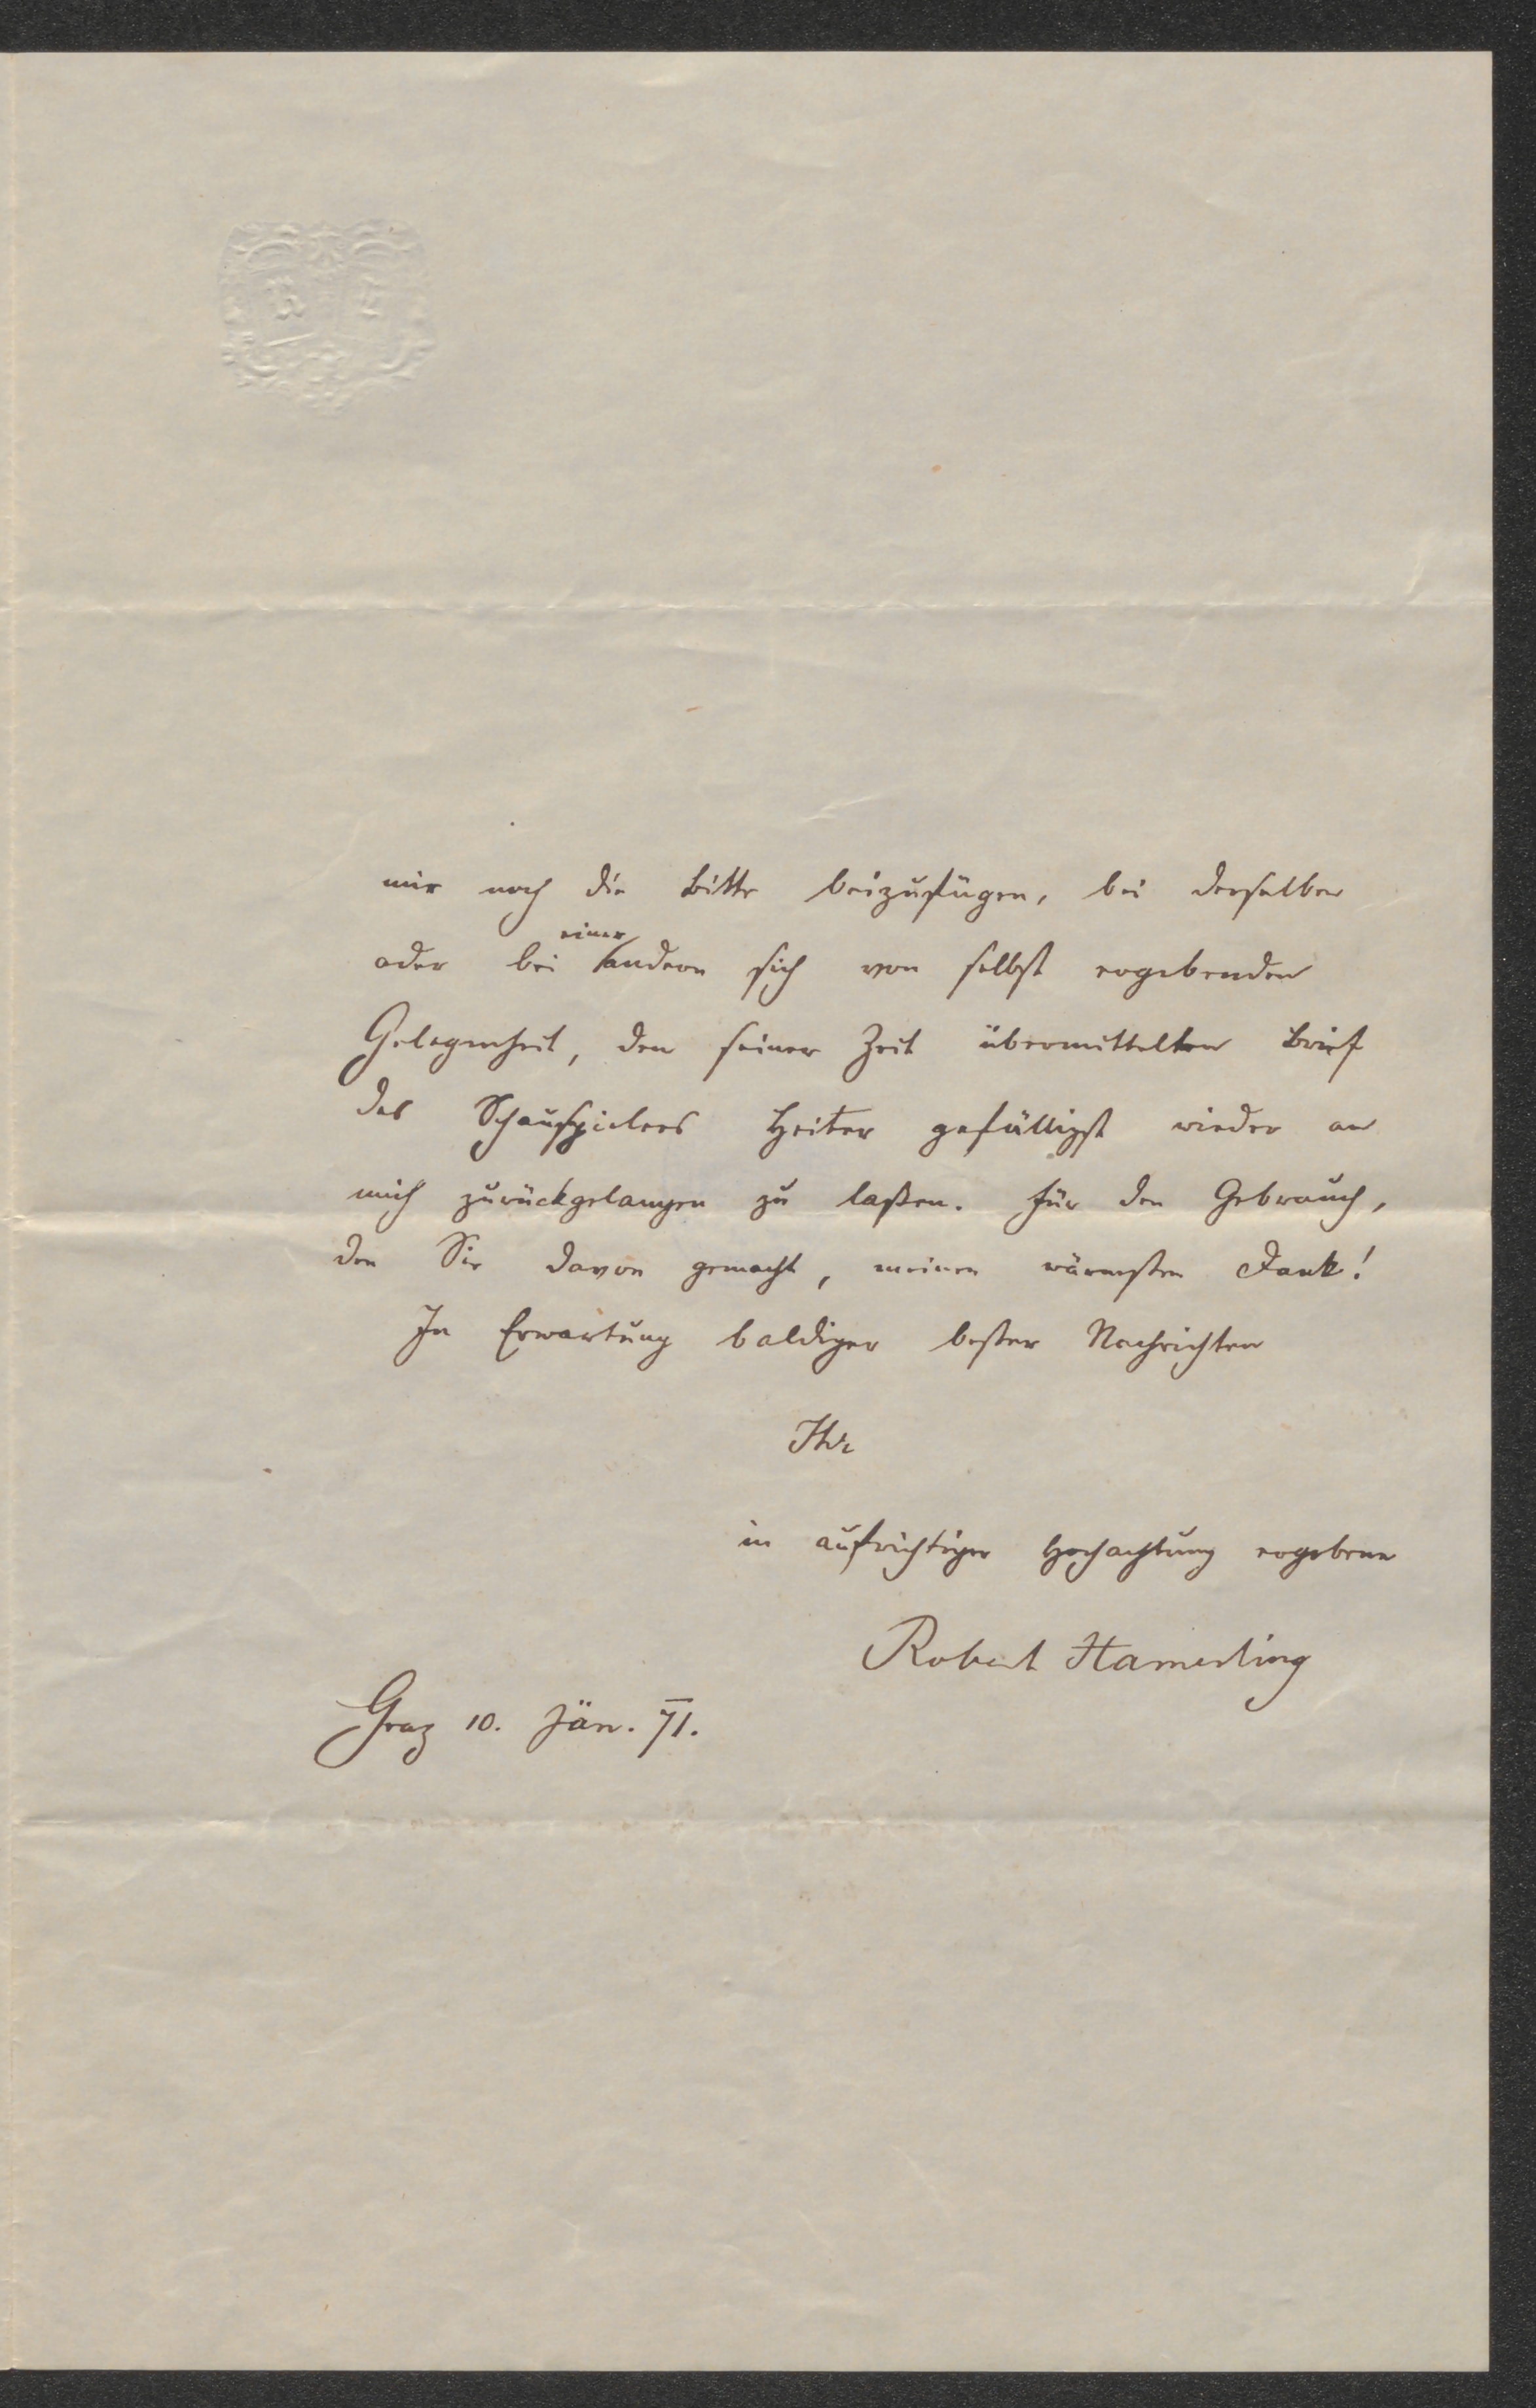 mir noch die Bitte beizufügen, bei derselben
oder bei einer andern sich von selbst ergebenden
Gelegenheit, den seiner Zeit übermittelten Brief
des Schauspielers Heiter gefälligst wieder an
mich zurückgelangen zu laßen. Für den Gebrauch,
den Sie davon gemacht, meinen wärmsten Dank!
In Erwartung baldiger bester Nachrichten
Ihr
in aufrichtiger Hochachtung ergebener
Robert Hamerling
Graz 10. Jän. 71.